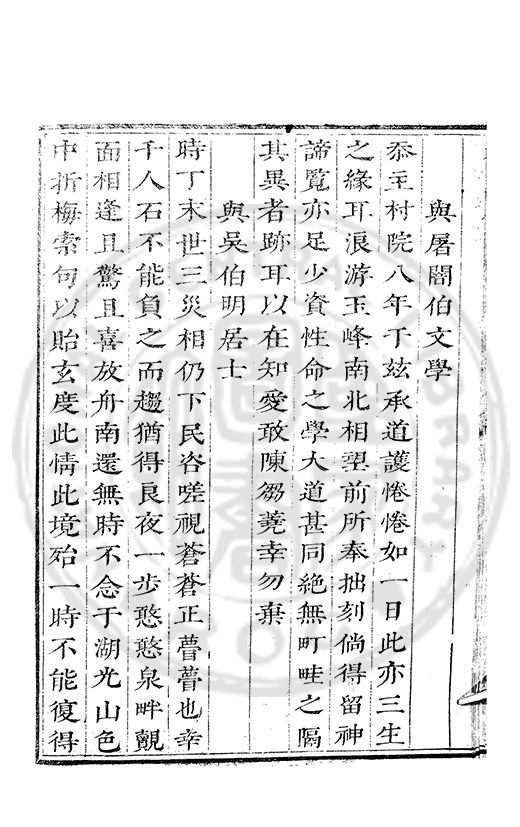 與屠闇伯文學
忝主村院八年于茲承道護惓惓如一日此亦三生
之緣耳浪游玉峰南北相望前所奉拙刻倘得留神
諦覽亦足少資性命之學大道甚同絕無町畦之隔
其異者跡耳以在知愛敢陳芻蕘幸勿棄
與吳伯明居士
時丁末世三災相仍下民咨嗟視蒼蒼正瞢瞢也幸
千人石不能負之而趨猶得良夜一步憨憨泉畔覿
面相逢且驚且喜放舟南還無時不念于湖光山色
中折梅索句以貽玄度此情此境殆一時不能復得